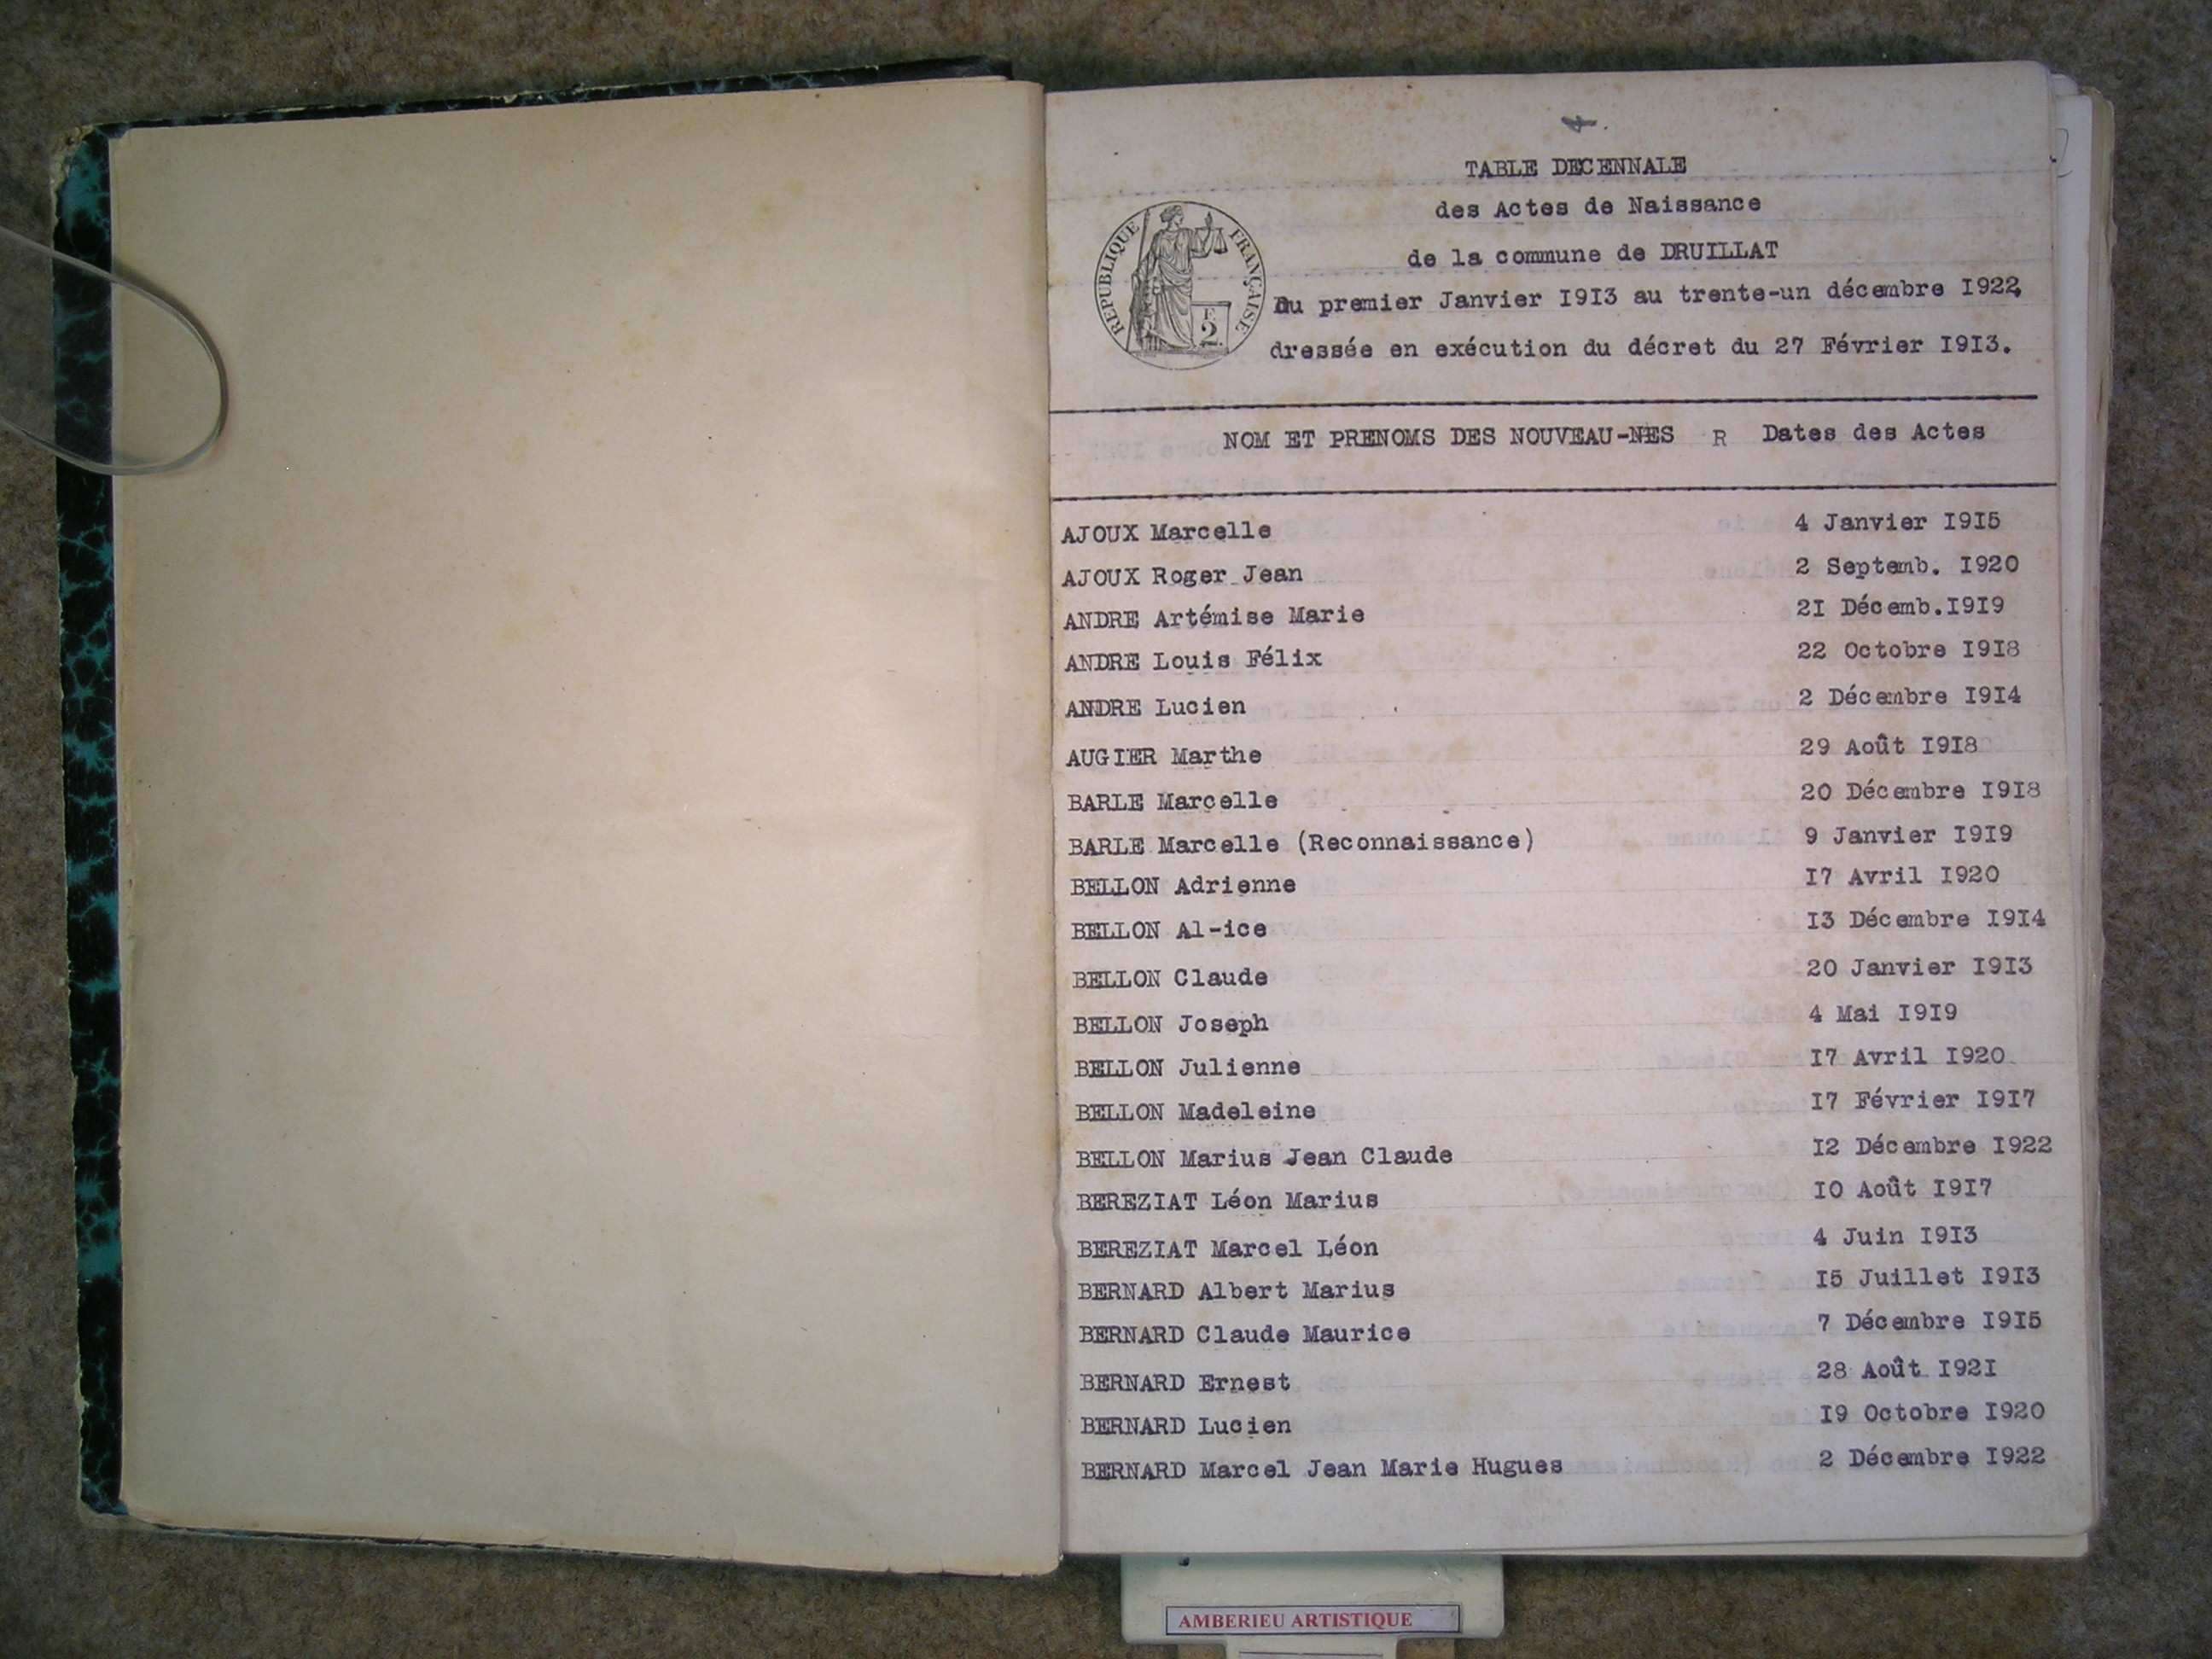 4.
TABLE DECENNALE
des Actes de Naissance
de la commune de DRUILLAT
REPUBLIQUE FRANÇAISE
F. 2
Du premier Janvier I9I3 au trente-un décembre I922,
dressée en exécution du décret du 27 Février I9I3.
NOM ET PRENOMS DES NOUVEAU-NES R Dates des Actes
AJOUX Marcelle 4 Janvier I9I5
AJOUX Roger Jean 2 Septemb. I920
ANDRE Artémise Marie 2I Décemb.I9I9
ANDRE Louis Félix 22 Octobre I9I8
ANDRE Lucien 2 Décembre I9I4
AUGIER Marthe 29 Août I9I8
BARLE Marcelle 20 Décembre I9I8
BARLE Marcelle (Reconnaissance) 9 Janvier I9I9
BELLON Adrienne I7 Avril I920
BELLON Al-ice I3 Décembre I9I4
BELLON Claude 20 Janvier I9I3
BELLON Joseph 4 Mai I9I9
BELLON Julienne I7 Avril I920
BELLON Madeleine I7 Février I9I7
BELLON Marius Jean Claude I2 Décembre I922
BEREZIAT Léon Marius I0 Août I9I7
BEREZIAT Marcel Léon 4 Juin I9I3
BERNARD Albert Marius I5 Juillet I9I3
BERNARD Claude Maurice 7 Décembre I9I5
BERNARD Ernest 28 Août I92I
BERNARD Lucien I9 Octobre I920
BERNARD Marcel Jean Marie Hugues 2 Décembre I922
AMBERIEU ARTISTIQUE